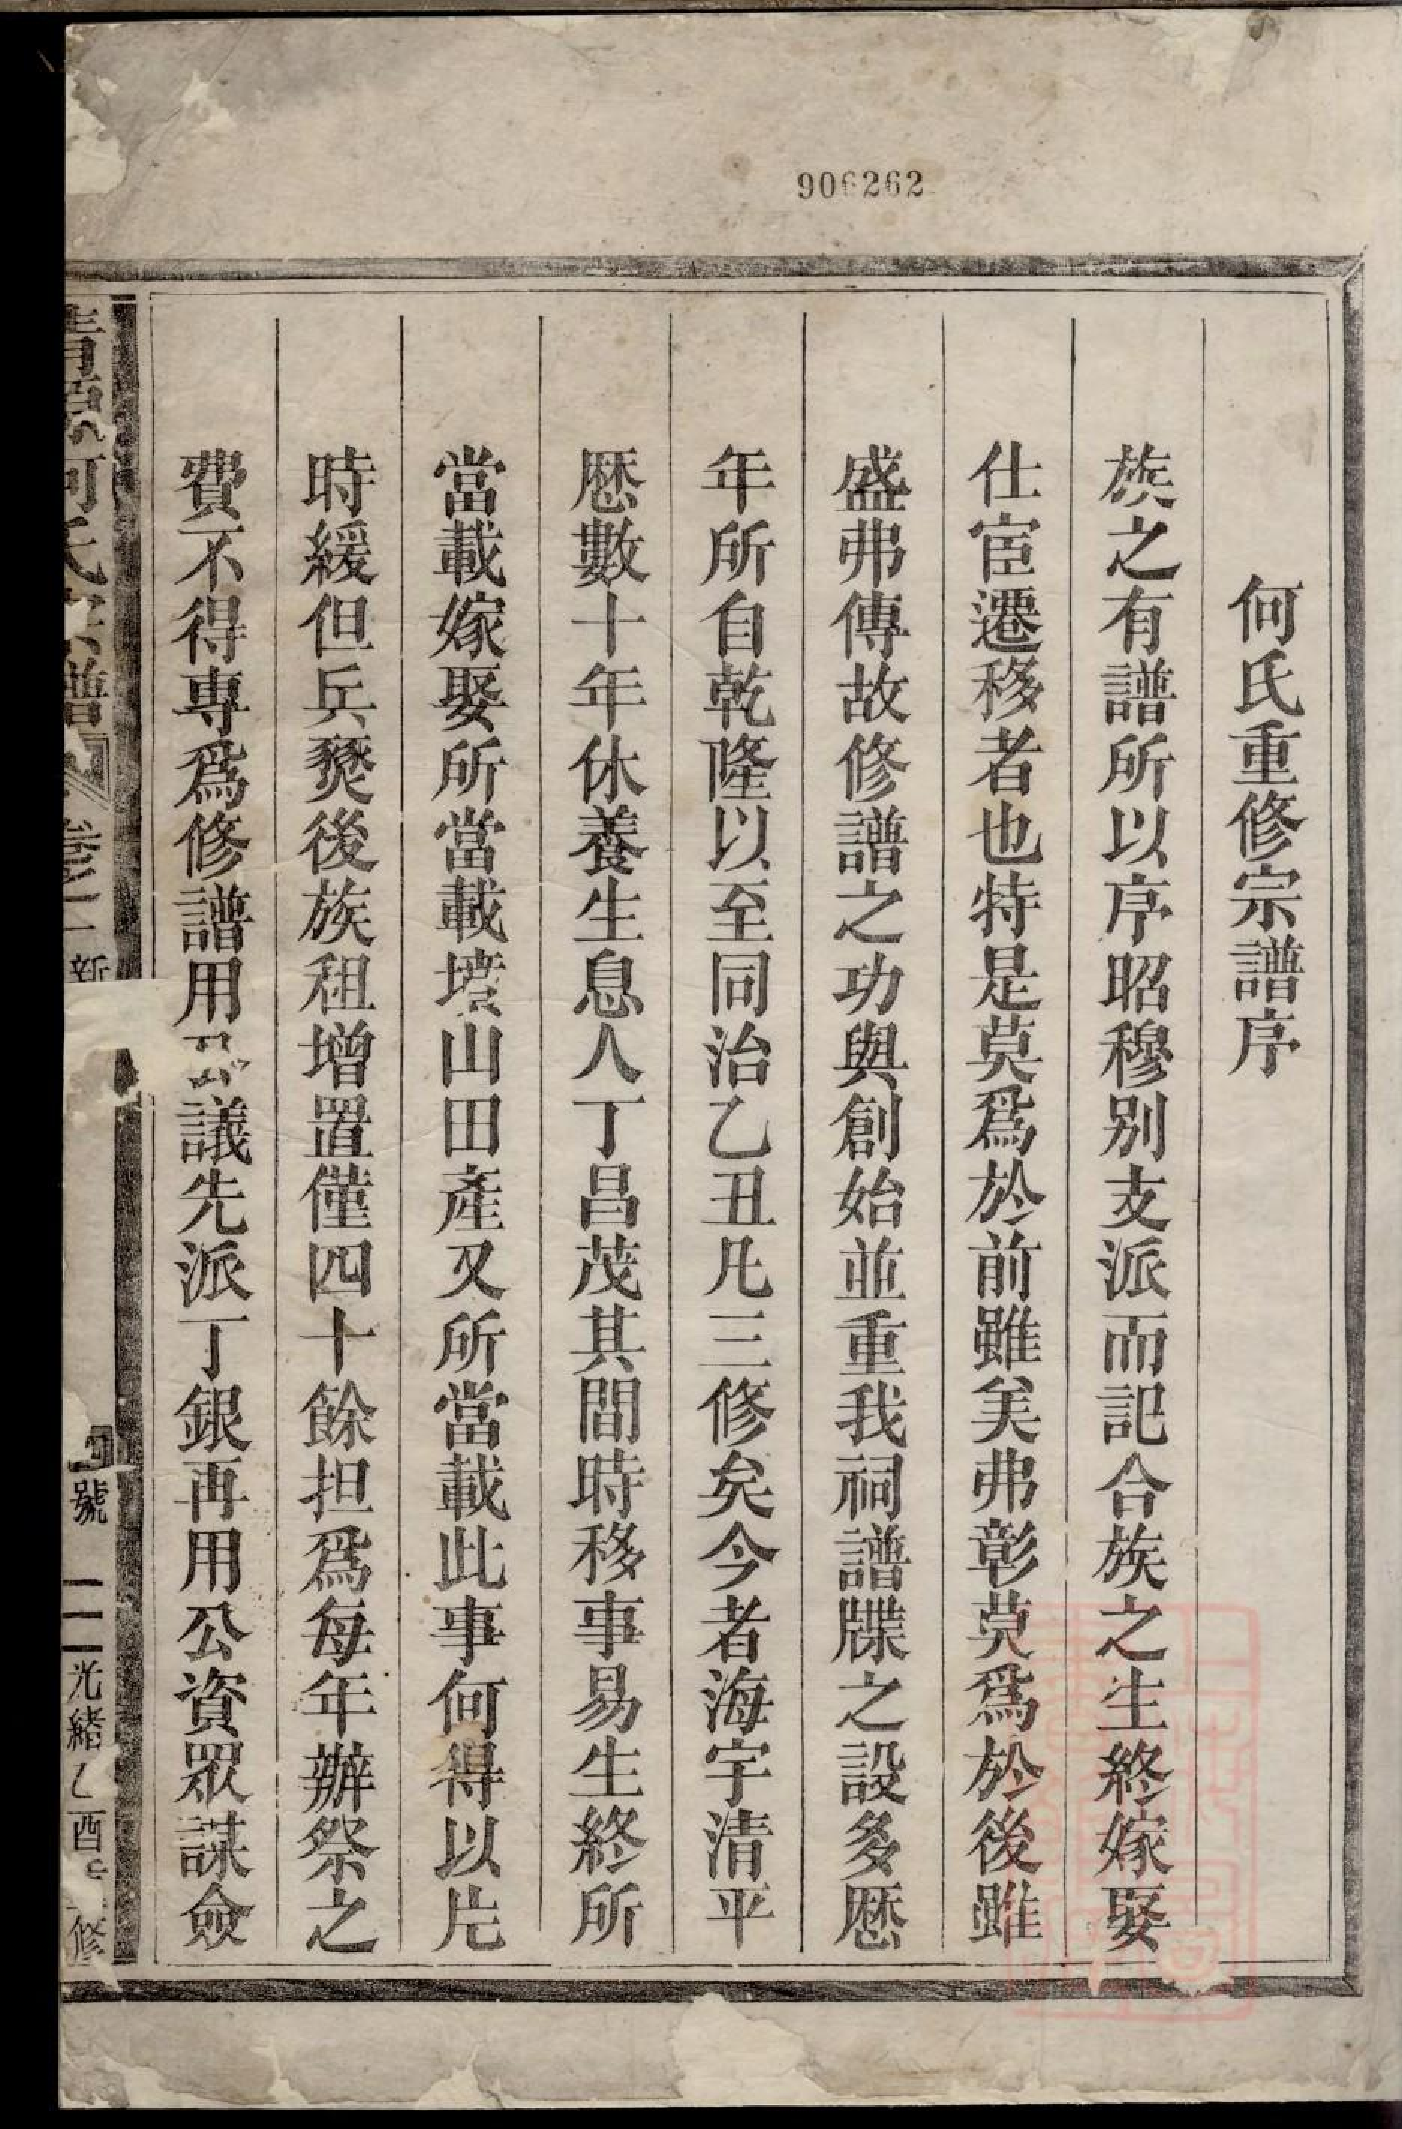 906262
何氏重修宗譜序
族之有譜所以序昭穆别支派而記合族之生終嫁娶
仕宦遷移者也特是莫爲於前雖美弗彰莫爲於後雖
盛弗傳故修譜之功與創始並重我祠譜牒之設多厯
年所自乾隆以至同治乙丑凡三修矣今者海宇清平
厯數十年休養生息人丁昌茂其間時移事易生終所
當載嫁娶所當載墳山田產又所當載此事何得以片
時緩但兵燹後族租增置僅四十餘担爲每年辦祭之
費不得專爲修譜用公議先派丁銀再用公資眾謀僉
何氏宗譜
卷之一
號
光緒乙酉
修